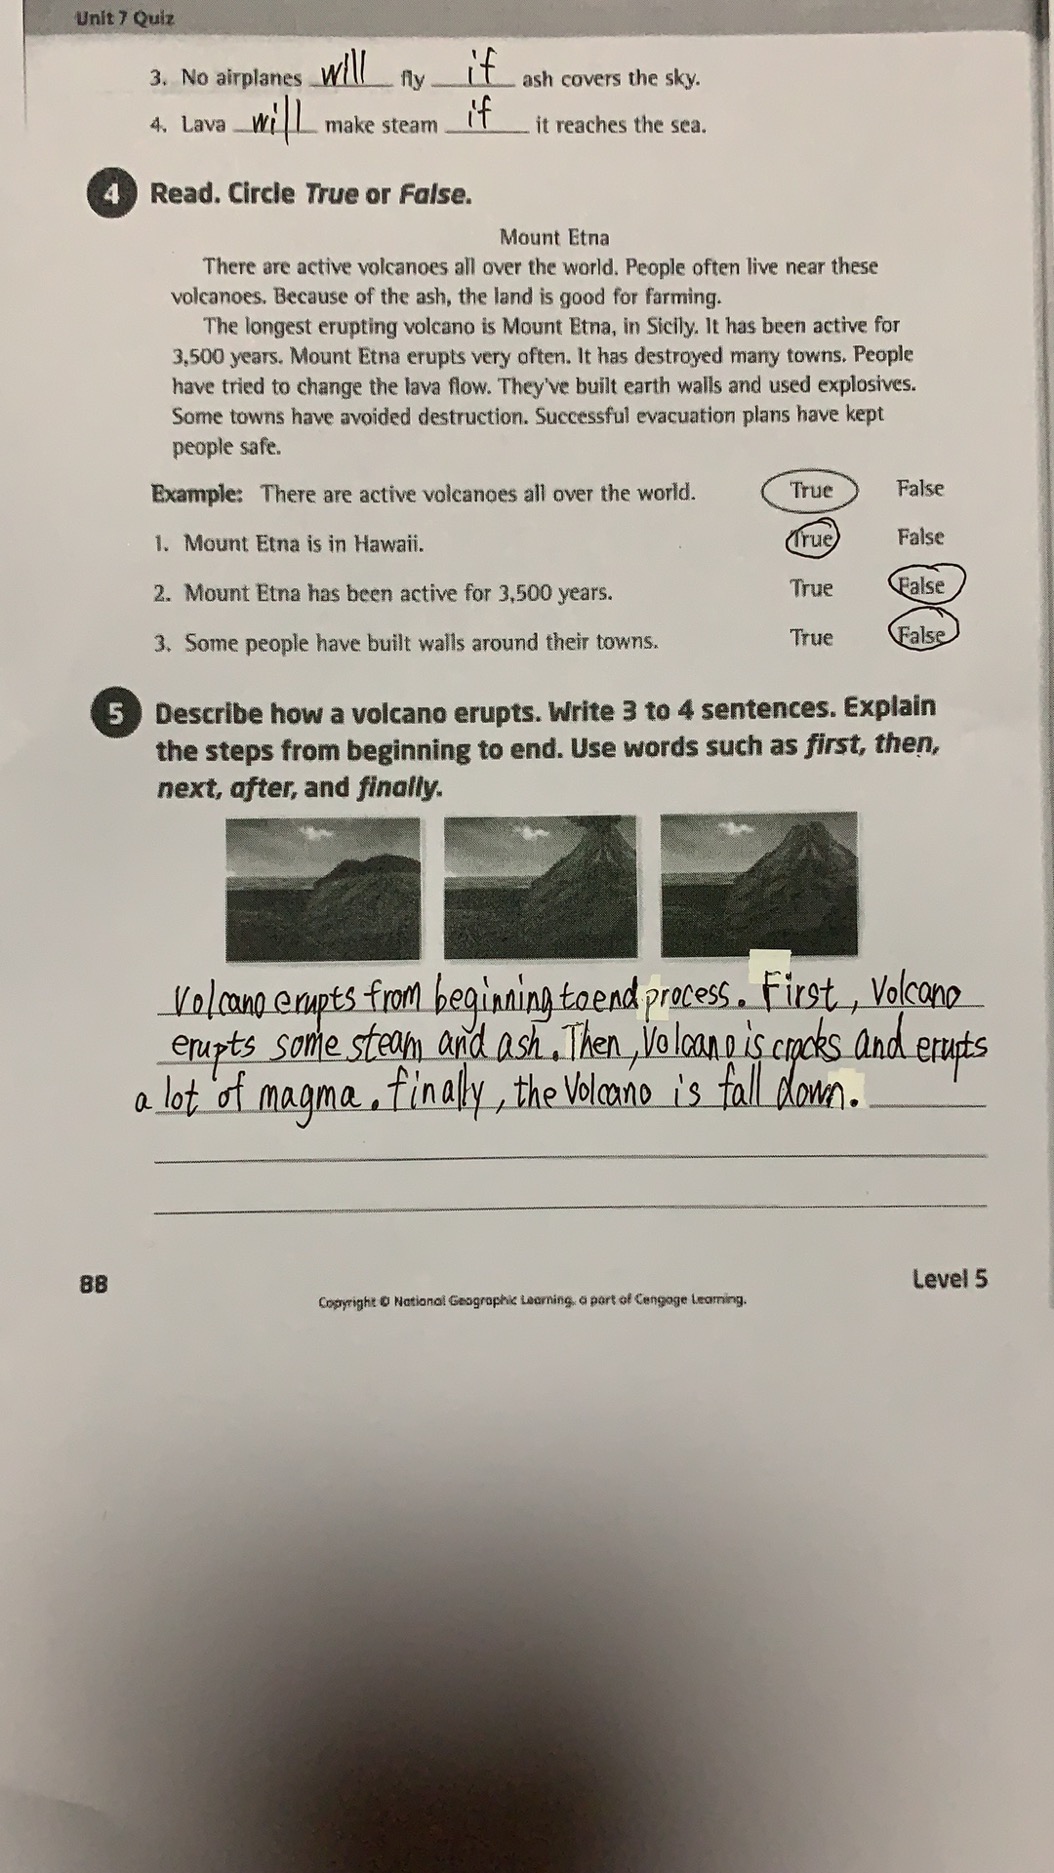 Unit 7 Quiz
3. No airplanes will fly if ash covers the sky.
4. Lava will make steam if it reaches the sea.
4 Read. Circle True or False.
Mount Etna
There are active volcanoes all over the world. People often live near these
volcanoes. Because of the ash, the land is good for farming.
The longest erupting volcano is Mount Etna, in Sicily. It has been active for
3,500 years. Mount Etna erupts very often. It has destroyed many towns. People
have tried to change the lava flow. They've built earth walls and used explosives.
Some towns have avoided destruction. Successful evacuation plans have kept
people safe.
Example: There are active volcanoes all over the world. True False
1. Mount Etna is in Hawaii. True False
2. Mount Etna has been active for 3,500 years. True False
3. Some people have built walls around their towns. True False
5 Describe how a volcano erupts. Write 3 to 4 sentences. Explain
the steps from beginning to end. Use words such as first, then,
next, after, and finally.
Volcano erupts from beginning to end process. First, Volcano
erupts some steam and ash. Then, Volcano is cracks and erupts
a lot of magma. finally, the Volcano is fall down.
88
Level 5
Copyright © National Geographic Learning, a part of Cengage Learning.